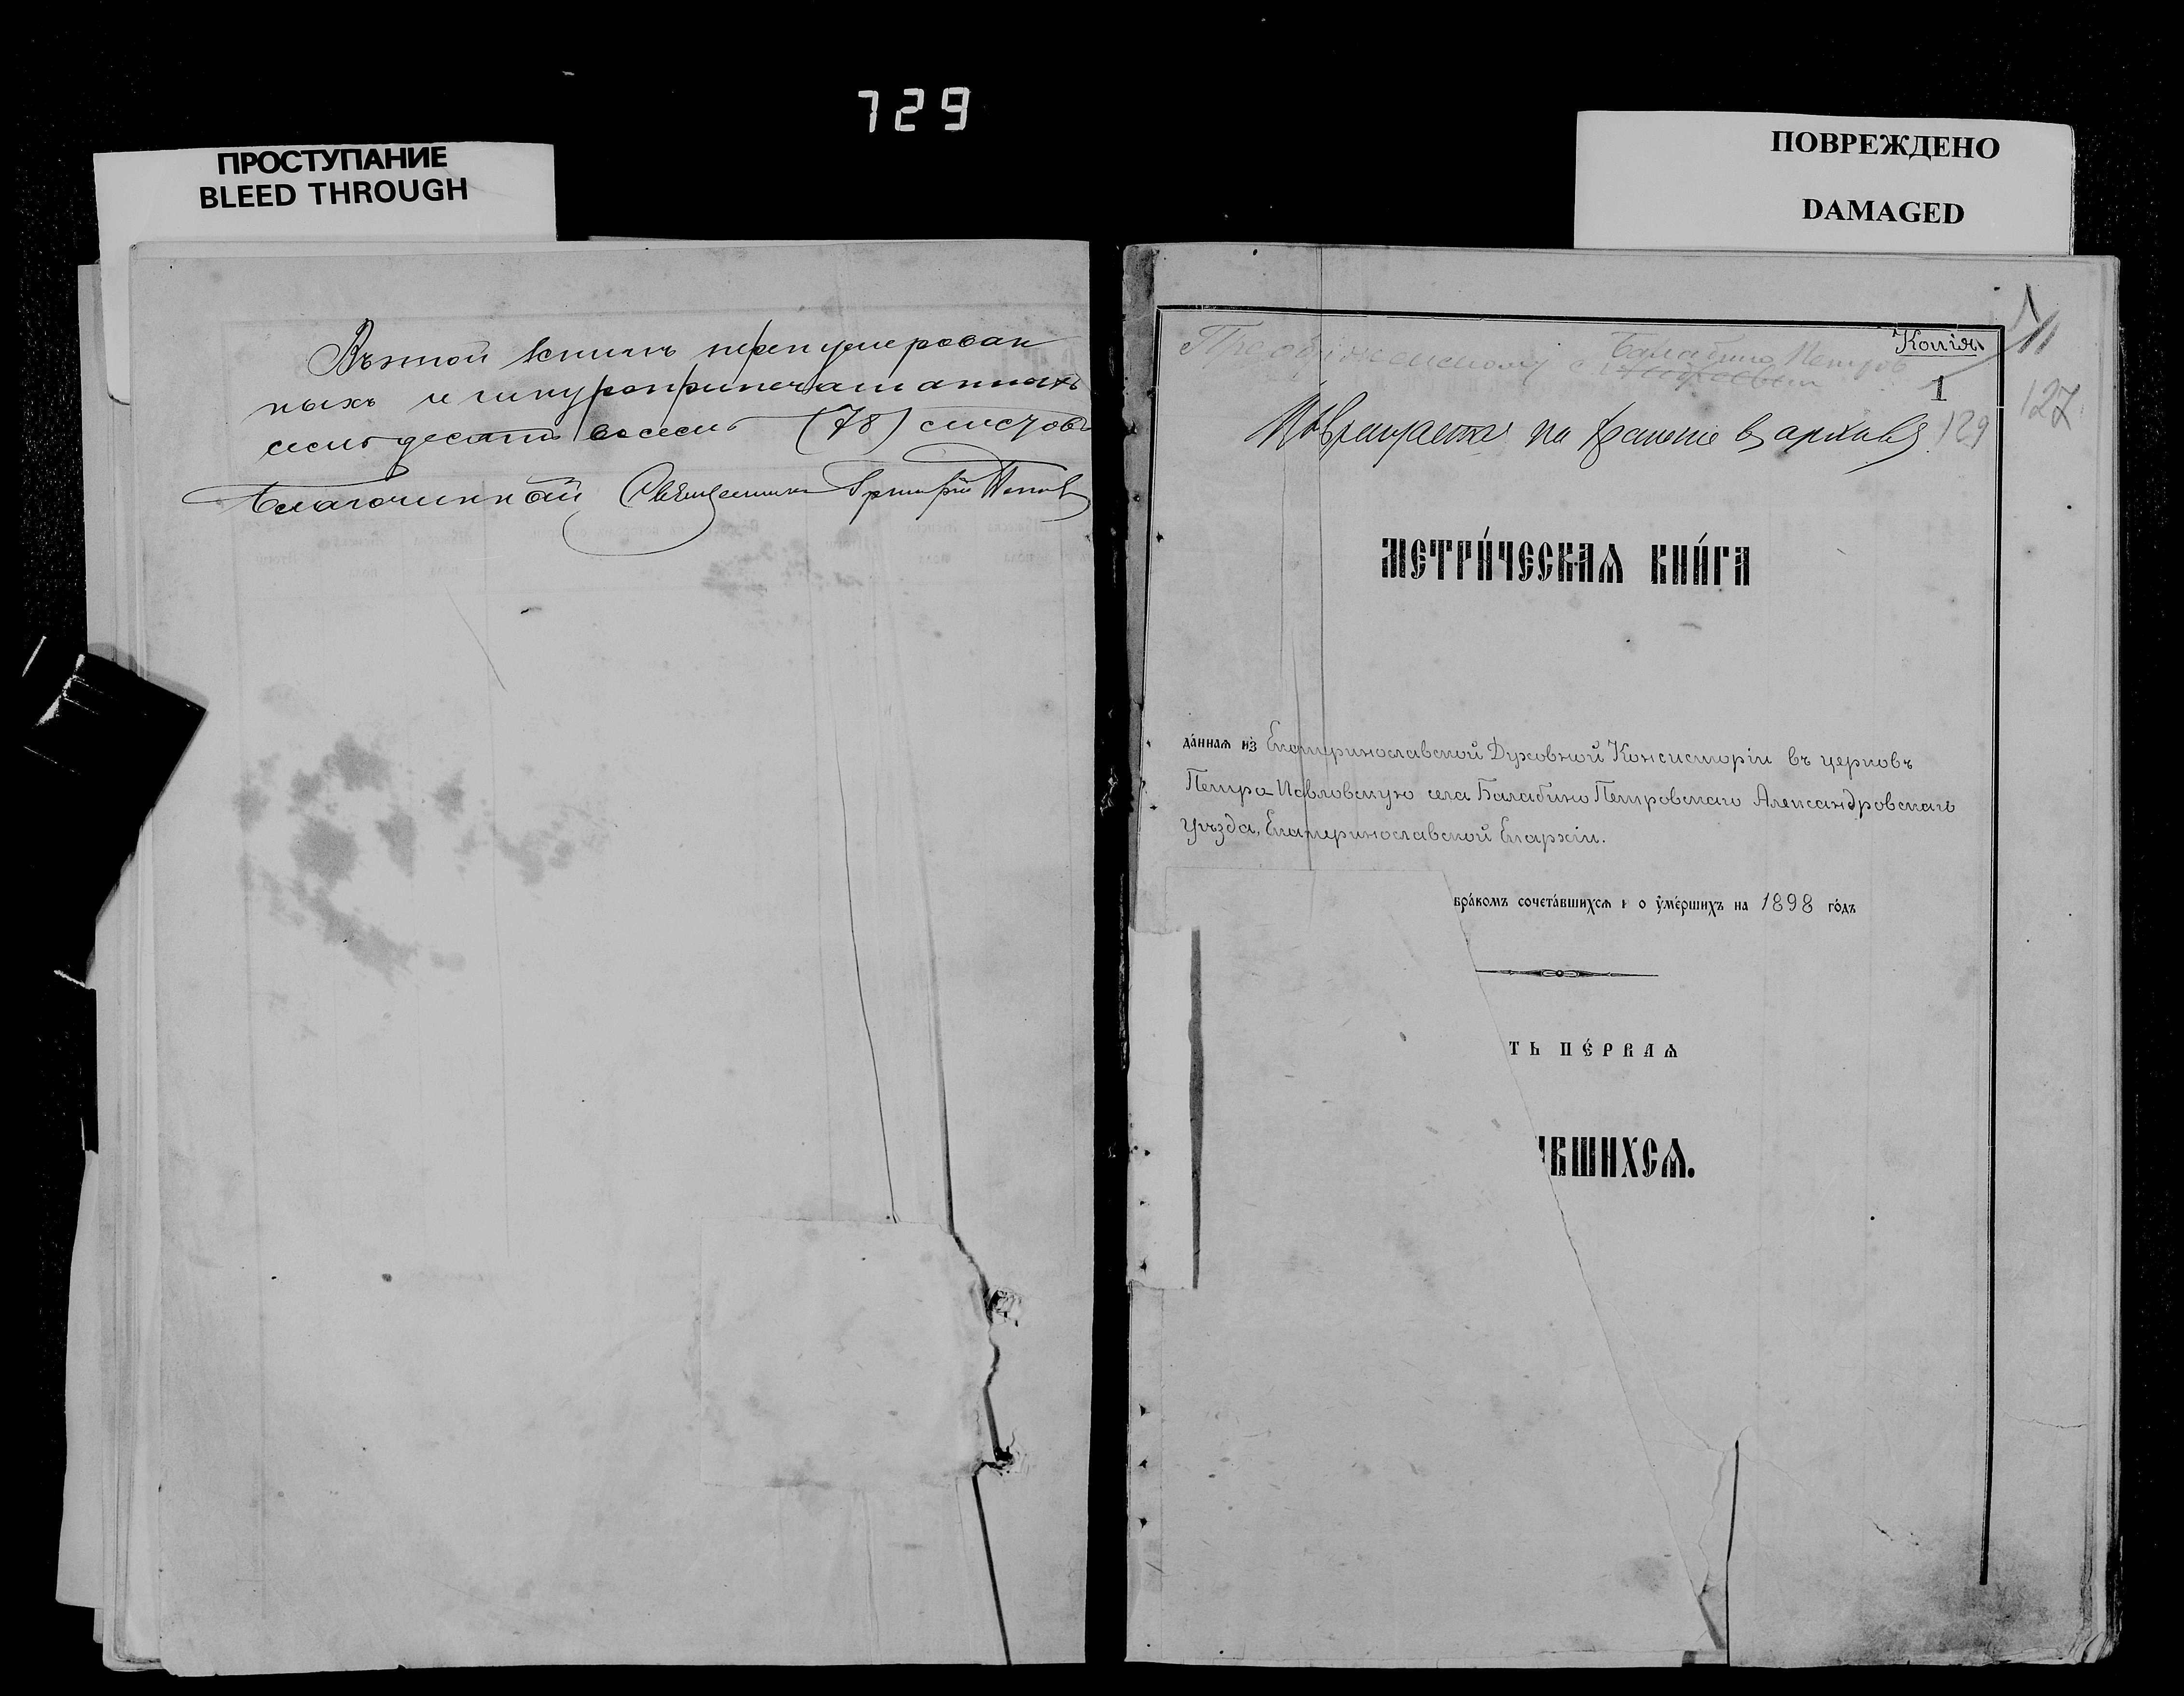 729
ПРОСТУПАНИЕ
BLEED THROUGH
ПОВРЕЖДЕНО
DAMAGED
Въ этой книгѣ перенумерован
ныхъ и шнуроприпечатанныхъ
семьдесятъ восемь (78) листовъ
Благочинный Священникъ Григорій Поповъ
Копія
1
127
129
МЕТРИ́ЧЕСКАѦ КНИ́ГА
да́ннаѧ из̾ Екатеринославской Духовной Консисторіи въ церковь
Петро-Павловскую села Балабино Петровскаго Александровскаго
уѣзда, Екатеринославской Епархіи.
бра́комъ сочета́вшихсѧ и о ᲂу҆ме́ршихъ на 1898 го́дъ
ТЬ ПЕ́РВАѦ
ВШИХСѦ.